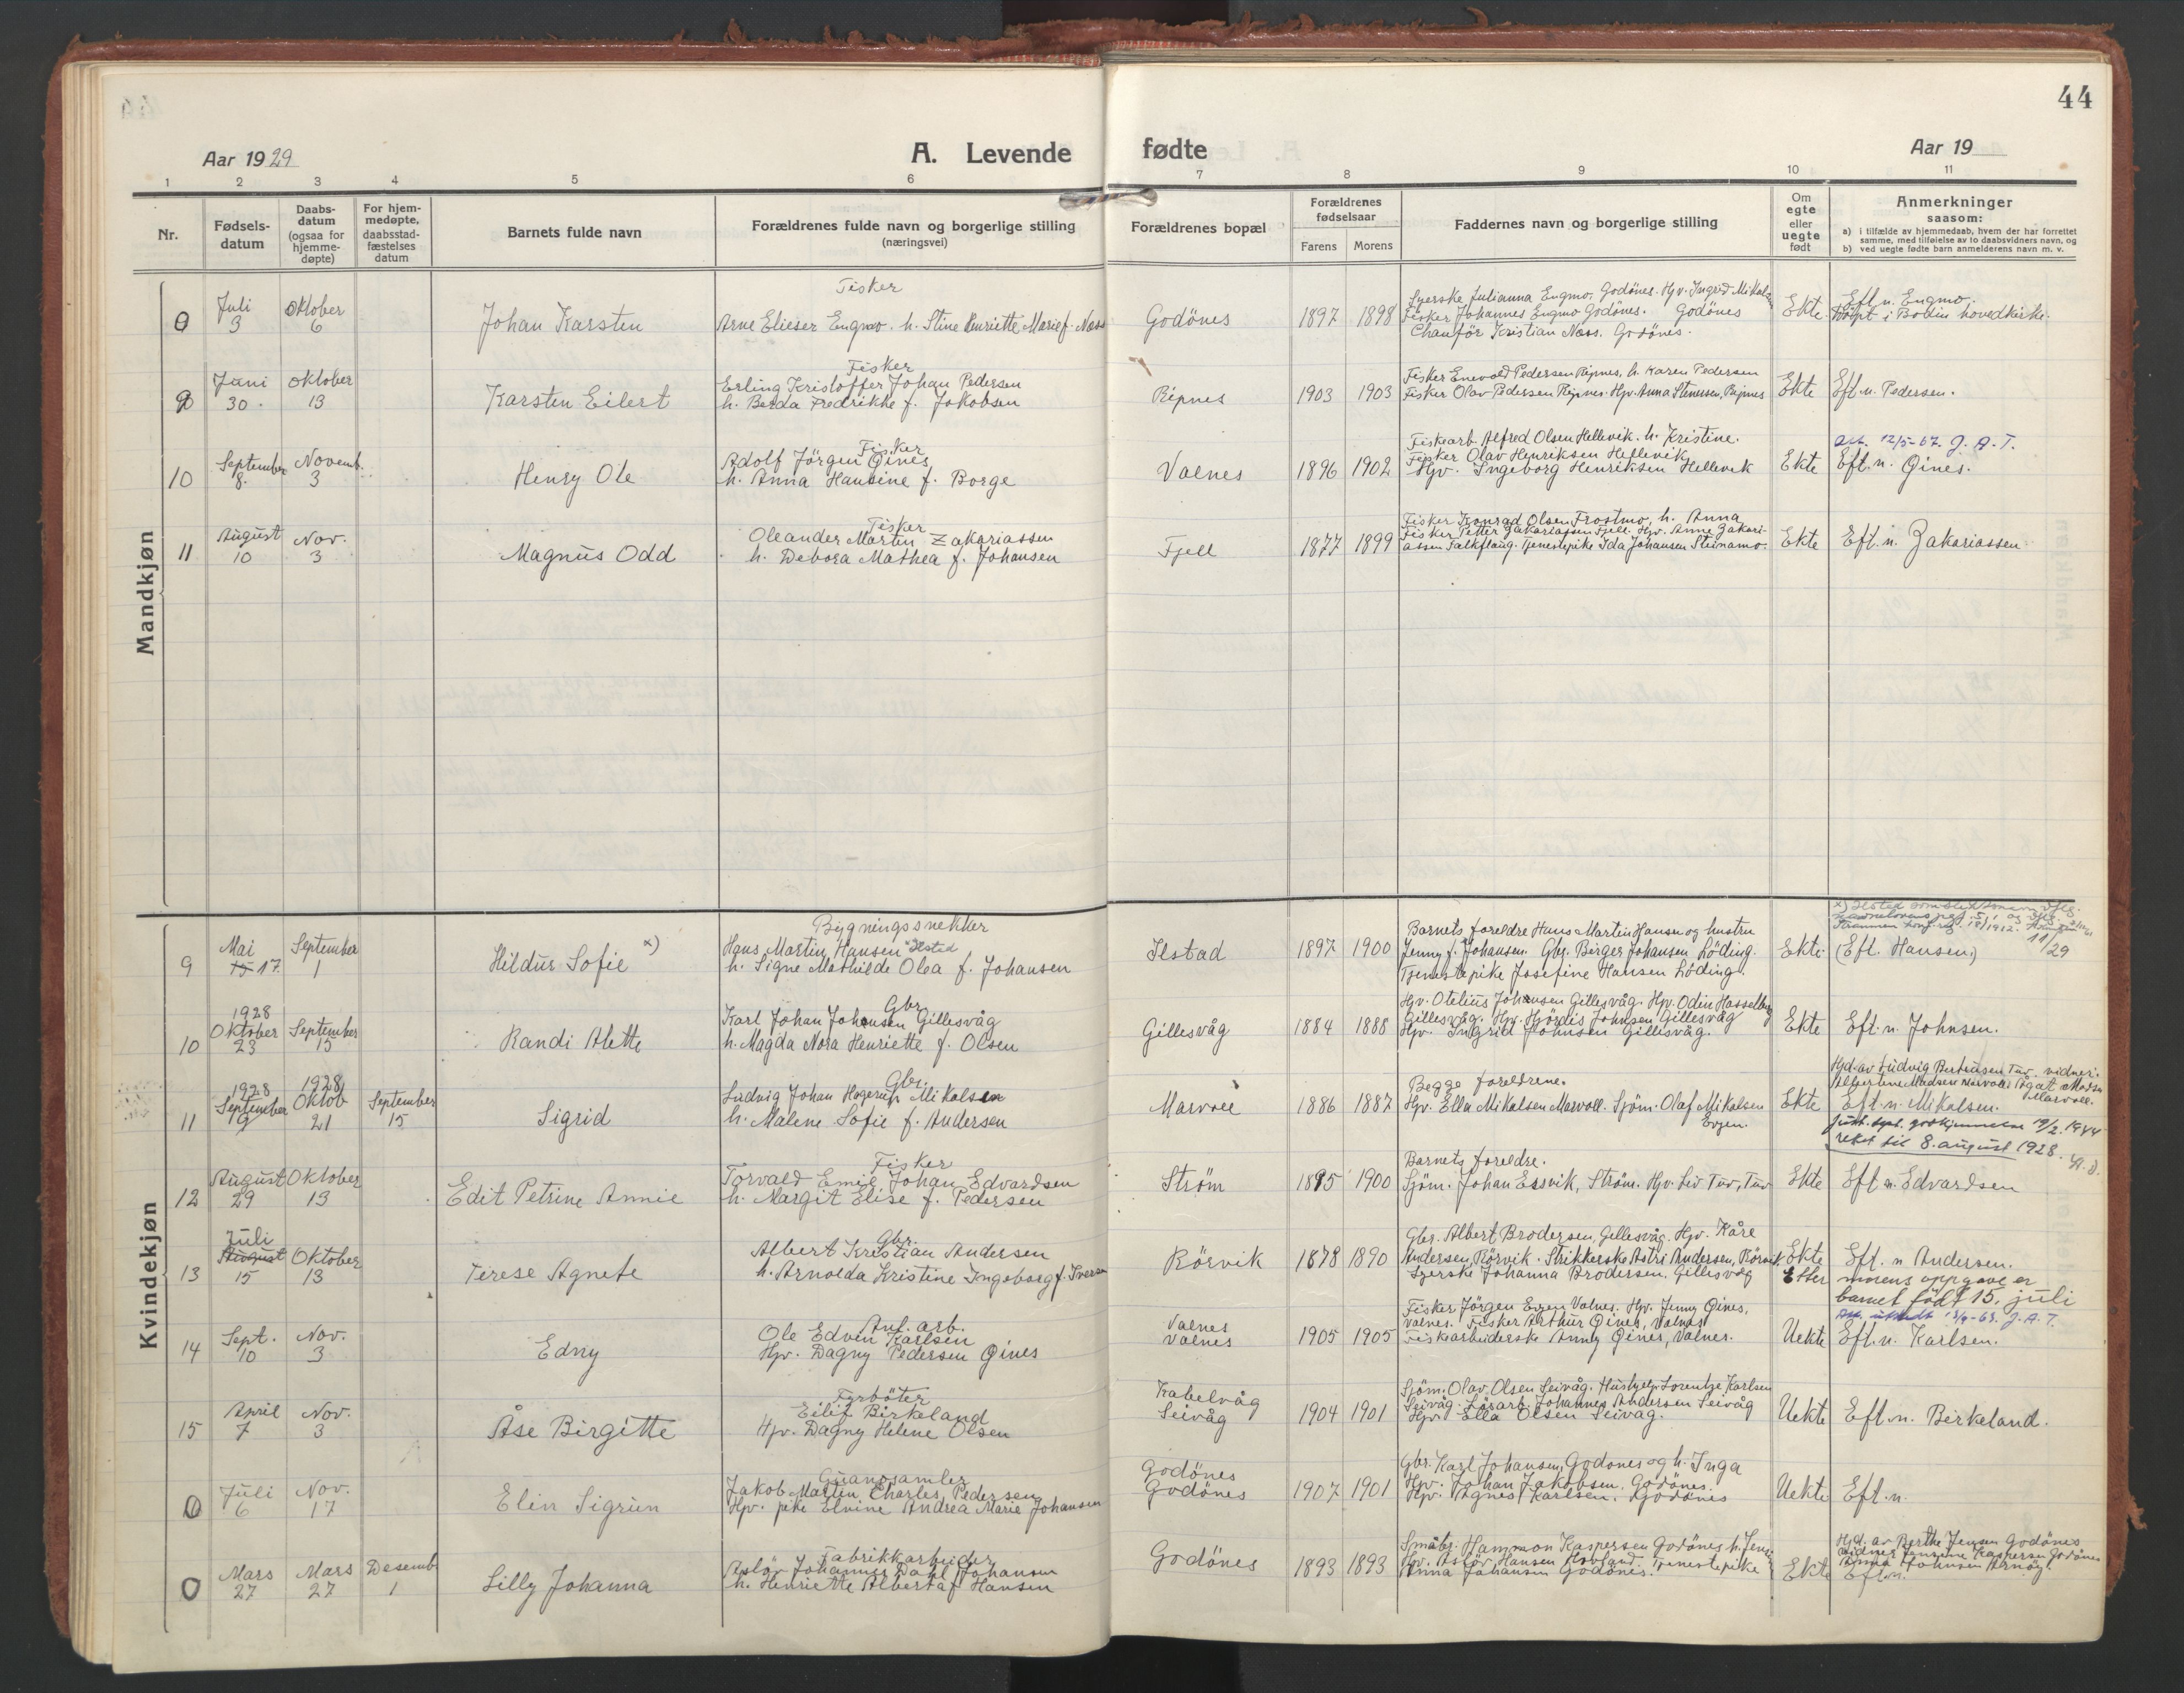 44
Aar 1929
A. Levende fødte
Aar 19
1 2 3 4 5 6 7 8 9 10 11
Nr.
Fødsels-
datum
Daabs-
datum
(ogsaa for
hjemme-
døpte)
For hjem-
medøpte,
daabsstad-
fæstelses
datum
Barnets fulde navn
Forældrenes fulde navn og borgerlige stilling
(næringsvei)
Forældrenes bopæl
Forældrenes
fødselsaar
Farens Morens
Faddernes navn og borgerlige stilling
Om
egte
eller
uegte
født
Anmerkninger
saasom:
a) i tilfælde av hjemmedaab, hvem der har forrettet
samme, med tilføielse av to daabsvidners navn, og
b) ved uegte fødte barn anmelderens navn m. v.
Mandkjøn
0
Juli
3
Oktober
6
Johan Karsten
Fisker
Arne Elieser Engmo. h. Stine Henriette Marie f. Næss
Godönes
1897 1898
Syerske Julianna Engmo, Godönes. Hjv. Ingrid Mikalsen
Fisker Johannes Engmo Godönes. Godönes
Chauför Kristian Næss. Godönes.
Ekte
Eft. n. Engmo.
Döpt i Bodin hovedkirke.
9
Juni
30.
Oktober
13
Karsten Eilert
Fisker
Erling Kristoffer Johan Pedersen
h. Berda Fredrikke f. Jakobsen
Ripnes
1903 1903
Fisker Enevold Pedersen Ripnes, h. Karen Pedersen
Fisker Olav Pedersen Ripnes. Hjv. Anna Stenersen, Ripnes
Ekte
Eft. n. Pedersen.
10
September
8.
Novemb.
3
Henry Ole
Fisker
Adolf Jörgen Gines
h. Anna Hansine f. Borge
Valnes
1896 1902
Fiskearb. Alfred Olsen Hellevik. h. Kristine.
Fisker Olav Henriksen Hellevik
Hjv. Ingeborg Henriksen Hellevik
Ekte
12/5-67. J. A. T.
Eft. n. Gines.
11
August
10
Nov.
3
Magnus Odd
Fisker
Oleander Martin Zakariassen
h. Debora Mathea f. Johansen
Fjell
1877 1899
Fisker Konrad Olsen Frostmo, h. Anna
Fisker Petter Zakariassen Fjell. Hjv. Anne Zakari-
assen Falkflaug. Tjenestepike Ida Johansen Steinamo.
Ekte
Eft. n. Zakariassen
Kvindekjøn
9
Mai
15 17.
September
1
Hildur Sofie x)
Bygningssnekker
Hans Martin Hansen Ilstad
h. Signe Mathilde Olea f. Johansen
Ilstad
1897 1900
Barnets foreldre Hans Martin Hansen og hustru
Jenny f. Johansen. Gbr. Birger Johansen Löding.
Tjenestepike Josefine Hansen Löding.
Ekte.
x) Ilstad som slektsnavn
11/29
(Eft. Hansen)
10
1928
Oktober
23
September
15
Randi Alette
Gbr.
Karl Johan Johnsen Gillesvåg
h. Magda Nora Henriette f. Olsen
Gillesvåg
1884 1888
Hjv. Otelius Johnsen Gillesvåg. Hjv. Odin Hasselberg
Gillesvåg. Hjv. Hjördis Johnsen Gillesvåg
Hjv. Ingrid Johnsen Gillesvåg.
Ekte
Eft. n. Johnsen.
11
1928
September
9
1928
Oktob
21
September
15
Sigrid
Gbr.
Ludvig Johan Hagerup Mikalsen
h. Malene Sofie f. Andersen
Marvoll
1886 1887
Begge foreldrene.
Hjv. Ella Mikalsen Marvoll. Sjöm. Olaf Mikalsen
Evjen.
Ekte
Hjd. av Ludvig Bertinsen Tuv. vidner:
Albertine Madsen Marvoll. Ågat Madsen
Marvoll.
Eft. n. Mikalsen.
just. dept. godkjennelse 19/2. 1944
rettet til 8. august 1928.
12
August
29
Oktober
13
Edit Petrine Annie
Fisker
Torvald Emil Johan Edvardsen
h. Margit Elise f. Pedersen
Strøm
1895 1900
Barnets foreldre.
Sjöm. Johan Essvik, Strøm. Hjv. Liv Tuv, Tuv
Ekte
Eft n. Edvardsen
13
Juli
August
15
Oktober
13
Terese Agnete
Gbr.
Albert Kristian Andersen
h. Arnolda Kristine Ingeborg f. Iversen
Rörvik
1878 1890
Gbr. Albert Brodersen, Gillesvåg. Hjv. Kåre
Andersen, Rörvik. Strikkerske Astri Andersen, Rörvik.
Syerske Johanna Brodersen, Gillesvåg
Ekte
Eft. n Andersen.
Etter morens oppgave er
barnet född 15. juli
14
Sept.
10
Nov.
3
Edny
Anl. arb.
Ole Edvin Karlsen
Hjv. Dagny Pedersen Gines
Valnes
Valnes
1905 1905
Fisker Jörgen Evjen Valnes. Hjv. Jenny Gines,
Valnes. Fisker Arthur Gines, Valnes
Fiskearbeiderske Anny Gines, Valnes.
Uekte
J. A. T.
Eft. n. Karlsen.
15
April
7
Nov.
3
Åse Birgitte
Fyrböter
Eilif Birkeland
Hjv. Dagny Helene Olsen
Kabelvåg
Seivåg
1904 1901
Sjöm. Olav Olsen Seivåg. Hushjelp Lorentze Karlsen
Seivåg. Lörarb. Johannes Andersen Seivåg
Hjv. Ella Olsen Seivåg.
Uekte
Eft. n. Birkeland.
0
Juli
6
Nov.
17
Elin Sigrun
Guanosamler
Jakob Martin Charles Pedersen
Hjv. pike Elvine Andrea Marie Johansen
Godönes
Godönes
1907 1901
Gbr. Karl Johansen, Godönes og h. Inga
Hjv. Johan Jakobsen, Godönes.
Hjv. Agnes Karlsen. Godönes
Uekte
Eft. n.
0
Mars
27
Mars
27
Desemb
1
Lilly Johanna
Fabrikkarbeider
Aslöv Johannes Dahl Johansen
h. Henriette Alberta f Hansen
Godönes
1893 1893
Småbr. Hammon Kaspersen Godönes h. Jensine
Hjv. Aslöv Hansen Hovland. Tjenestepike
Anna Johansen Godönes.
Ekte
Hjd. av Berthe Jensen Godönes
vidner Jensine Kaspersen Godönes
Anna Johansen Arnöy.
Eft. n.